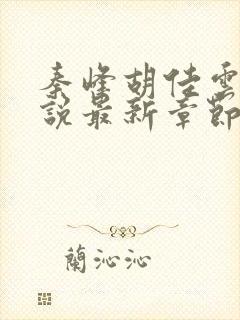 秦峰胡佳雲
說最新章節
蘭沁沁